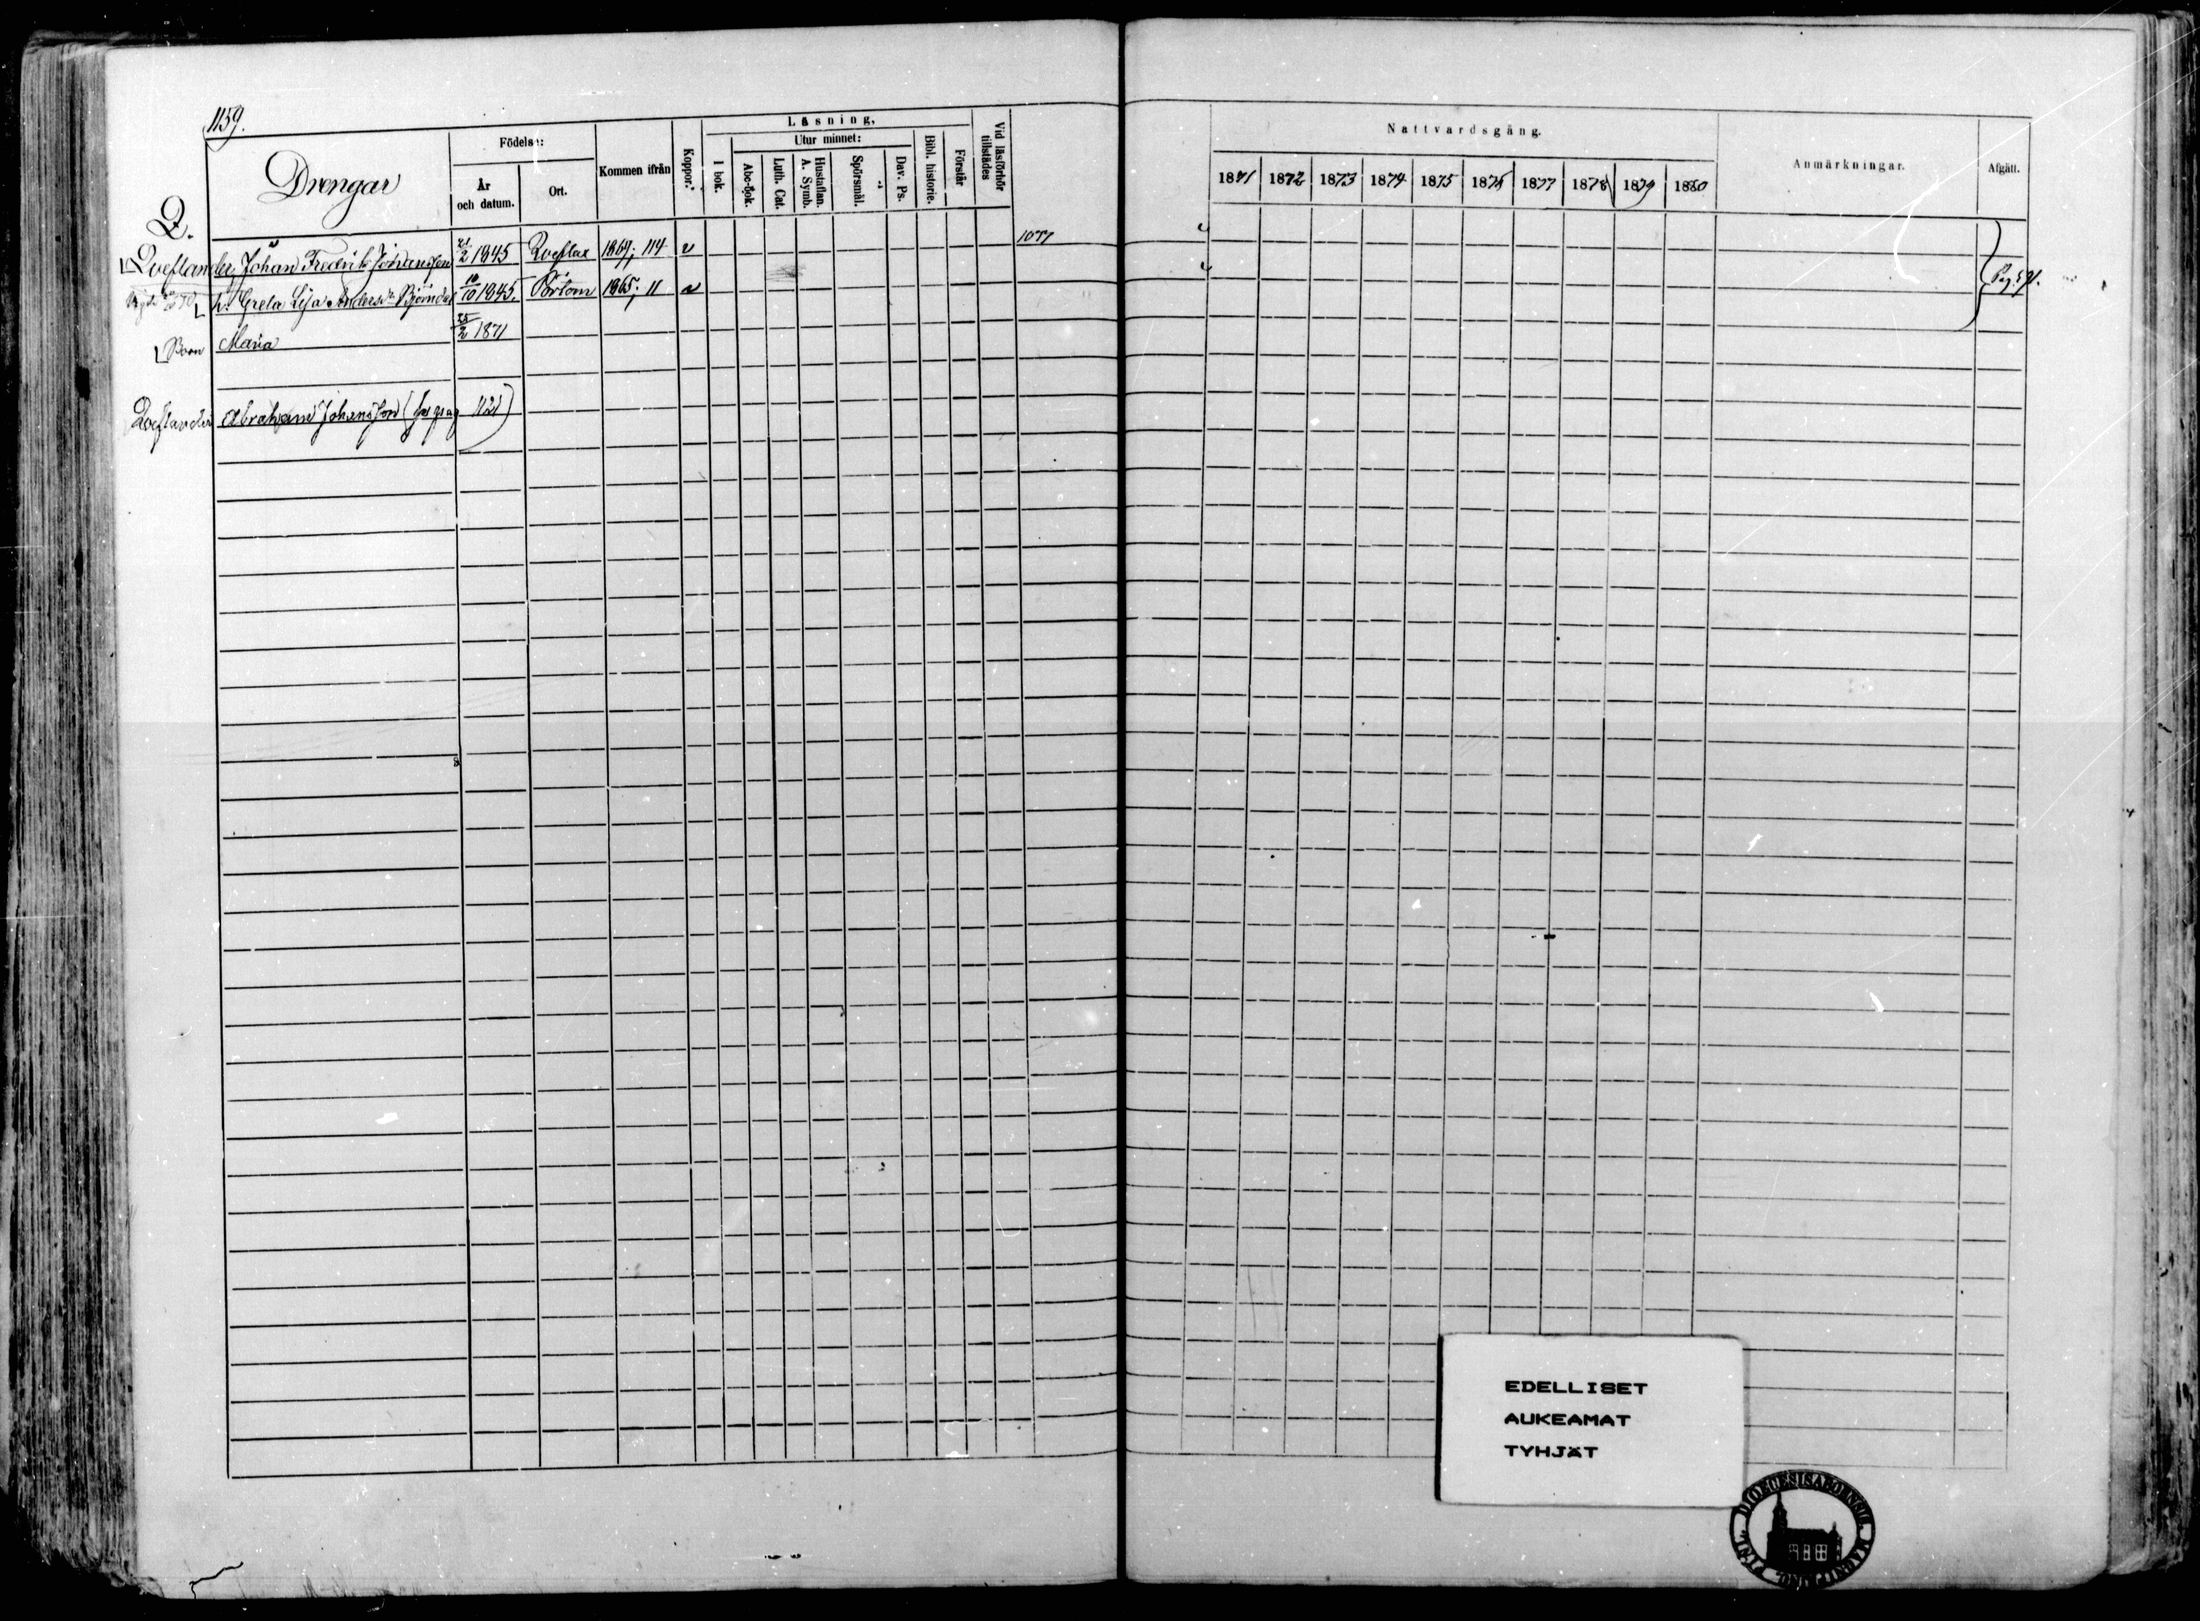 1159.
Drengar
Födelse:
År
och datum.
Ort.
Kommen ifrån
Koppor.
Läsning,
I bok.
Utur minnet:
Abc-bok.
Luth. Cat.
Hustaflan.
A. Symb.
Spörsmål.
Dav. Ps.
Bibl. historie.
Förstår
Vid läsförhör
tillstädes
Nattvardsgång.
1871 1872 1873 1874 1875 1876 1877 1878 1879 1880
Anmärkningar.
Afgått.
Q.
Qveflander, Johan Fredrik Johansson 21/2 1845 Qveflax 1869; 114 v 1077
h. Greta Lisa Andersdr Björndal 10/10 1845. Pörtom 1865; 11 v
Pag. 591.
Barn Maria 25/2 1871
Qveflander Abraham Johansson (se pag 1121)
EDELLISET
AUKEAMAT
TYHJÄT